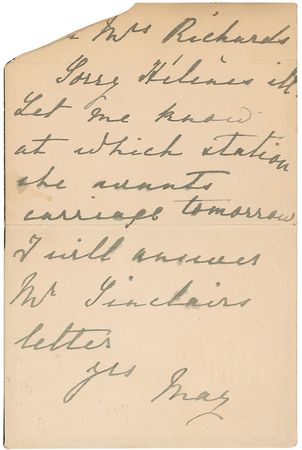 Mrs Richards
Sorry Hélènes ill.
Let me know
at which station
she wants
carriage tomorrow
I will answer
Mr Sinclairs
letter
yrs
May